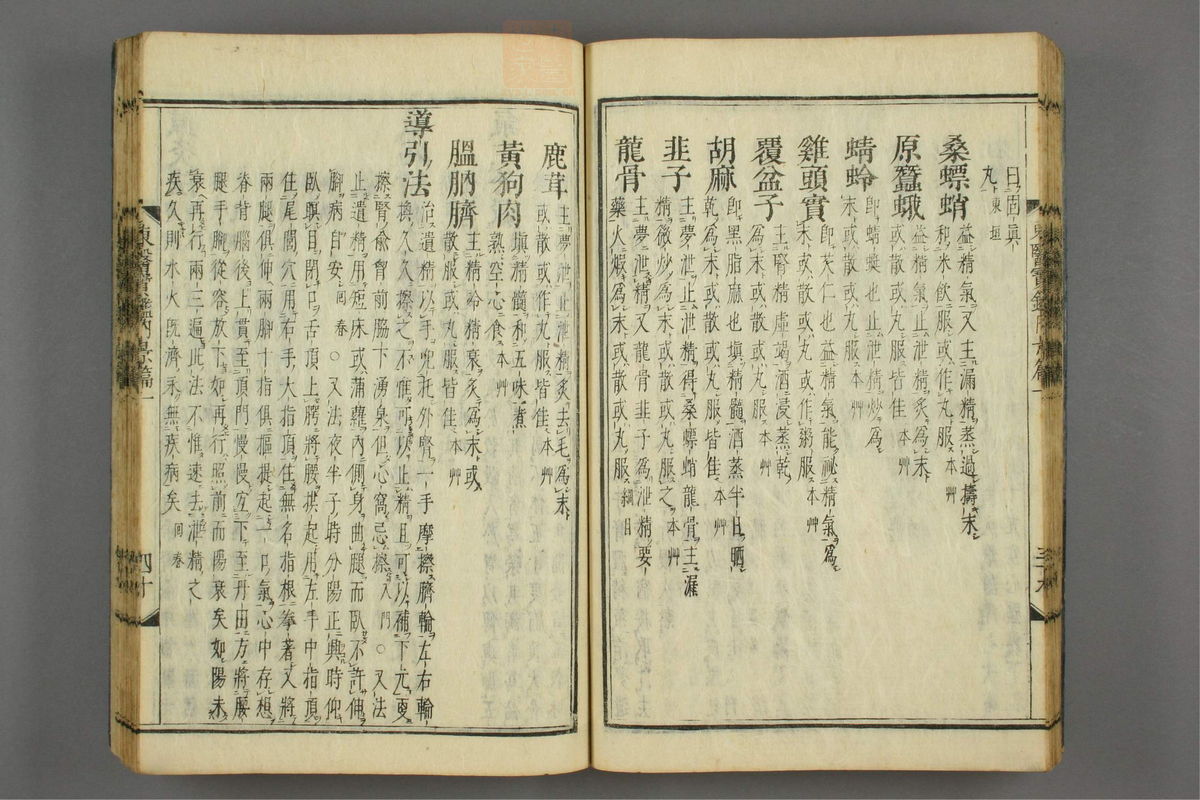 曰固眞
丸東垣
桑螵蛸益精氣又主漏精蒸過擣末
和米飮服或作丸服本艸
原蠶蛾益精氣止泄精炙爲末
或散或丸服皆佳本艸
蜻蛉卽蜻蜓也止泄精炒爲
末或散或丸服本艸
雞頭實卽芡仁也益精氣能祕精氣爲
散或丸或作粥服本艸
覆盆子主腎精虛竭酒浸蒸乾
爲末或散或丸服本艸
胡麻卽黑脂麻也塡精髓酒蒸半日晒
乾爲末或散或丸服皆佳本艸
韭子主夢泄止泄精得桑螵蛸龍骨主漏
精微炒爲末或散或丸服之本艸
龍骨主夢泄精又龍骨韭子爲泄精要
藥火煆爲末或散或丸服綱目
東醫寶鑑內景篇一
三十九
鹿茸主夢泄止泄精炙去毛爲末
或散或作丸服皆佳本艸
黃狗肉塡精髓和五味煮
熟空心食本艸
膃肭臍主精冷精衰炙爲末或
散服或丸服皆佳本艸
導引法治遺精以手兜托外腎一手摩擦臍輪左右輪
換久久擦之不惟可以止精且可以補下元更
擦腎兪會前脇下湧泉但心窩忌擦入門○又法
止遺精用短床或蒲蘿內側身曲腿而臥不許伸
腳病自安回春○又法夜半子時分陽正興時仰
臥瞑目閉口舌頂上腭將腰拱起用左手中指頂
住尾閭穴用右手大指頂住無名指根拳著又將
兩腿俱伸兩脚十指俱摳提起一口氣心中存想
脊背腦後上貫至頂門慢慢直下至丹田方將腰
腿手脚從容放下如再行照前而陽衰矣如陽未
衰再行兩三遍此法不惟速去泄精之
疾久則水火旣濟永無疾病矣回春
東醫寶鑑內景篇一
四十